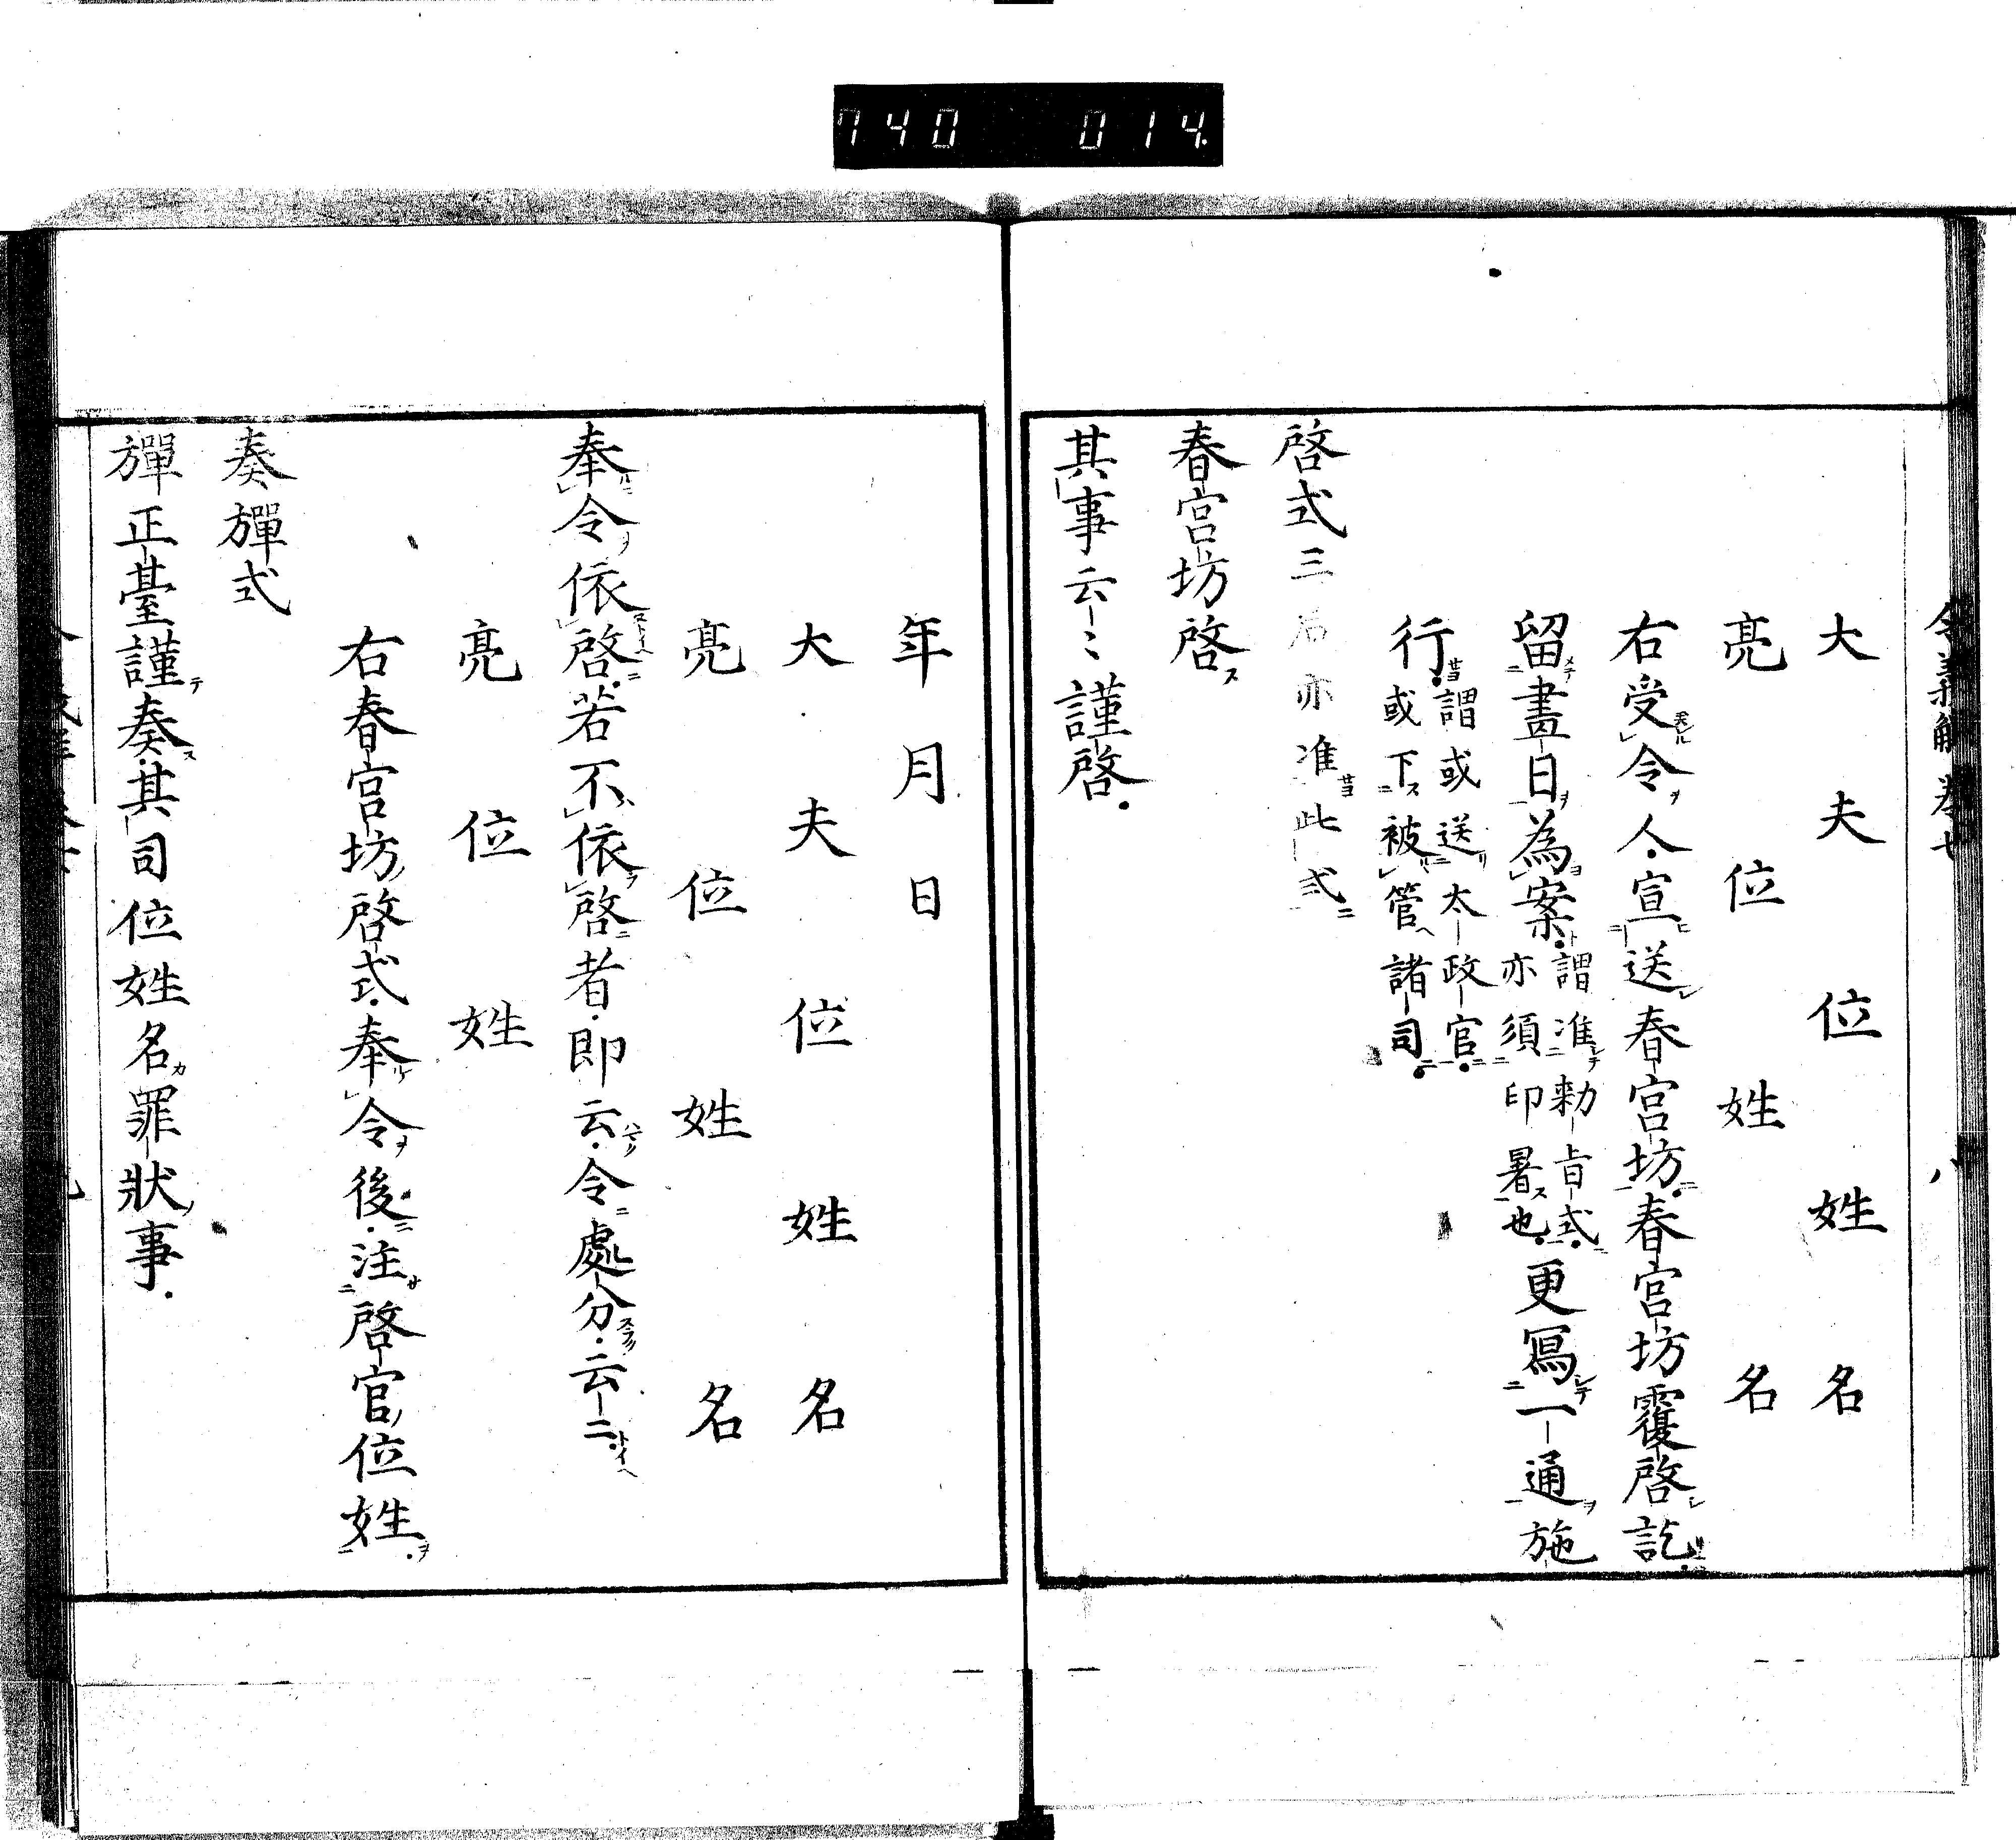 740 014
令義解 卷七 八
大夫位姓名
亮位姓名
右受令人宣送春宮坊春宮坊覆啓訖
留畫日為案謂准勅旨式
亦須印署也更寫一通施
行謂或送太政官
或下被管諸司
啓式三后亦准此式
春宮坊啓
其事云云謹啓
年月日
大夫位姓名
亮位姓名
奉令依啓若不依啓者即云令處分云云
亮位姓
右春宮坊啓式奉令後注啓官位姓
奏彈式
彈正臺謹奏其司位姓名罪狀事